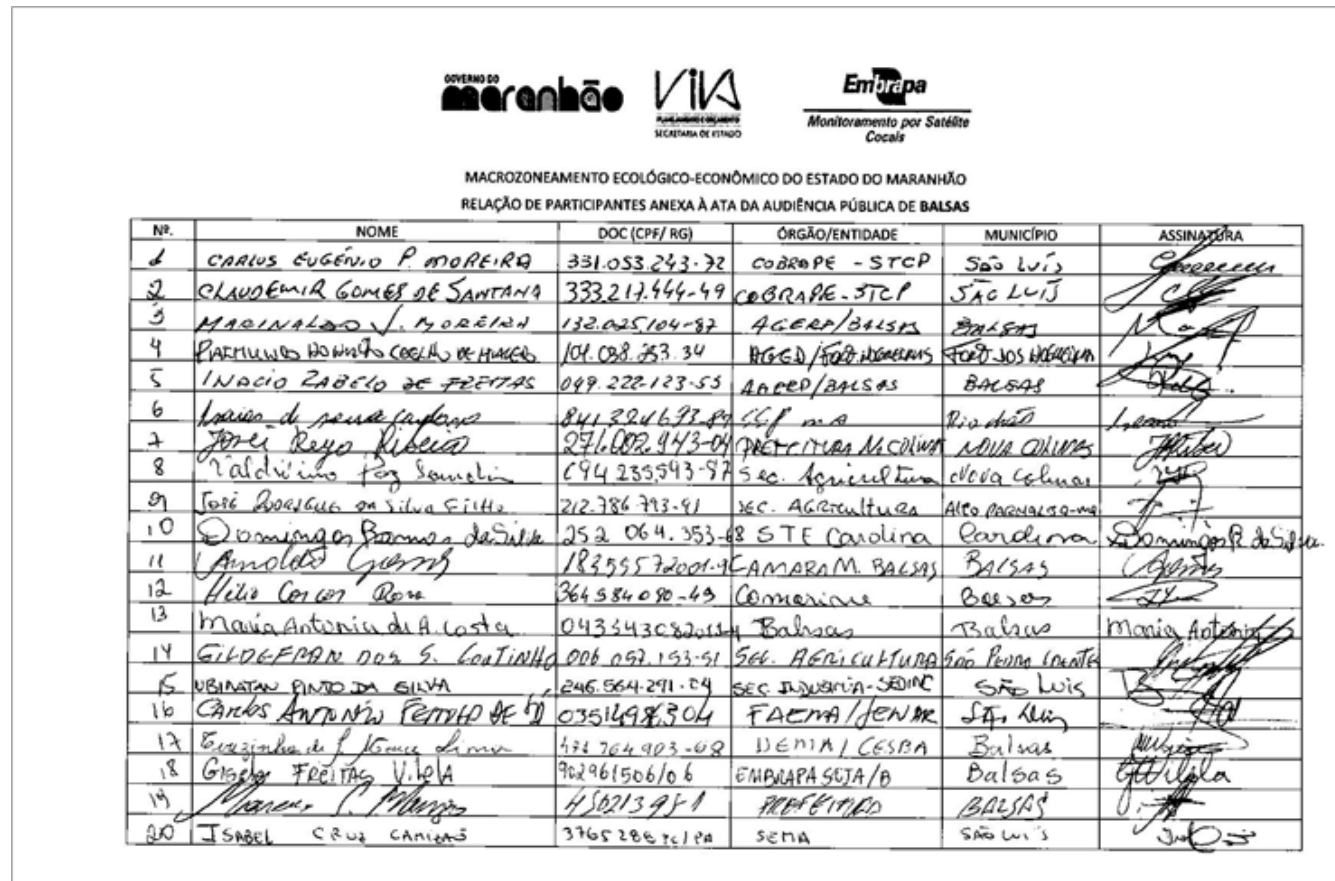 GOVERNO DO
maranhão
VIVA
PLANEJAMENTO E ORÇAMENTO
SECRETARIA DE ESTADO
Embrapa
Monitoramento por Satélite
Cocais
MACROZONEAMENTO ECOLÓGICO-ECONÔMICO DO ESTADO DO MARANHÃO
RELAÇÃO DE PARTICIPANTES ANEXA À ATA DA AUDIÊNCIA PÚBLICA DE BALSAS
Nº. NOME DOC (CPF/ RG) ÓRGÃO/ENTIDADE MUNICÍPIO ASSINATURA
1 CARLOS EUGÊNIO P. MOREIRA 331.053.243-72 COBRAPE - STCP São Luís
2 CLAUDEMIR GOMES DE SANTANA 333.217.444-49 COBRAPE-STCP SÃO LUÍS
3 MARINALDO J. MOREIRA 132.025.104-87 AGERP/BALSAS BALSAS
4 COELHO DE 101.038.253.34 AGED
5 INACIO ZABELO DE FREITAS 049.222.123-53 AGERP/BALSAS BALSAS
6 Isaias de 841324693-89
7 José Rego Ribeiro 271.002.943-04 PREFEITURA N. COLINAS NOVA COLINAS
8 Valdivino Paz 694235593-87 Sec. Agricultura Nova Colinas
9 José Rodrigues da Silva Filho 212.786.793-91 SEC. AGRICULTURA ALTO PARNAIBA-MA
10 Domingos Ramos da Silva 252 064.353-68 STE Carolina Carolina Domingos R. da Silva.
11 Arnoldo CAMARA M. BALSAS BALSAS
12 Hélio Rosa 364584090-49 Balsas
13 Maria Antonia de A. Costa Balsas Balsas Maria Antonia
14 GILDEFRAN DOS S. COUTINHO 006 057.153-51 SEC. AGRICULTURA São Pedro Crentes
15 UBIRATAN PINTO DA SILVA 246.564.291-04 SEC INDUSTRIA-SEDINC SÃO LUIS
16 CARLOS ANTONIO DE 03514986304 FAEMA/SENAR São Luis
17 Lima 471764903-68 UEMA/CESBA Balsas
18 FREITAS VILELA 902961506/06 EMBRAPA SOJA/B Balsas GVilela
19 450213981 PREFEITURA BALSAS
20 ISABEL CRUZ 3765286 SEMA SÃO LUIS